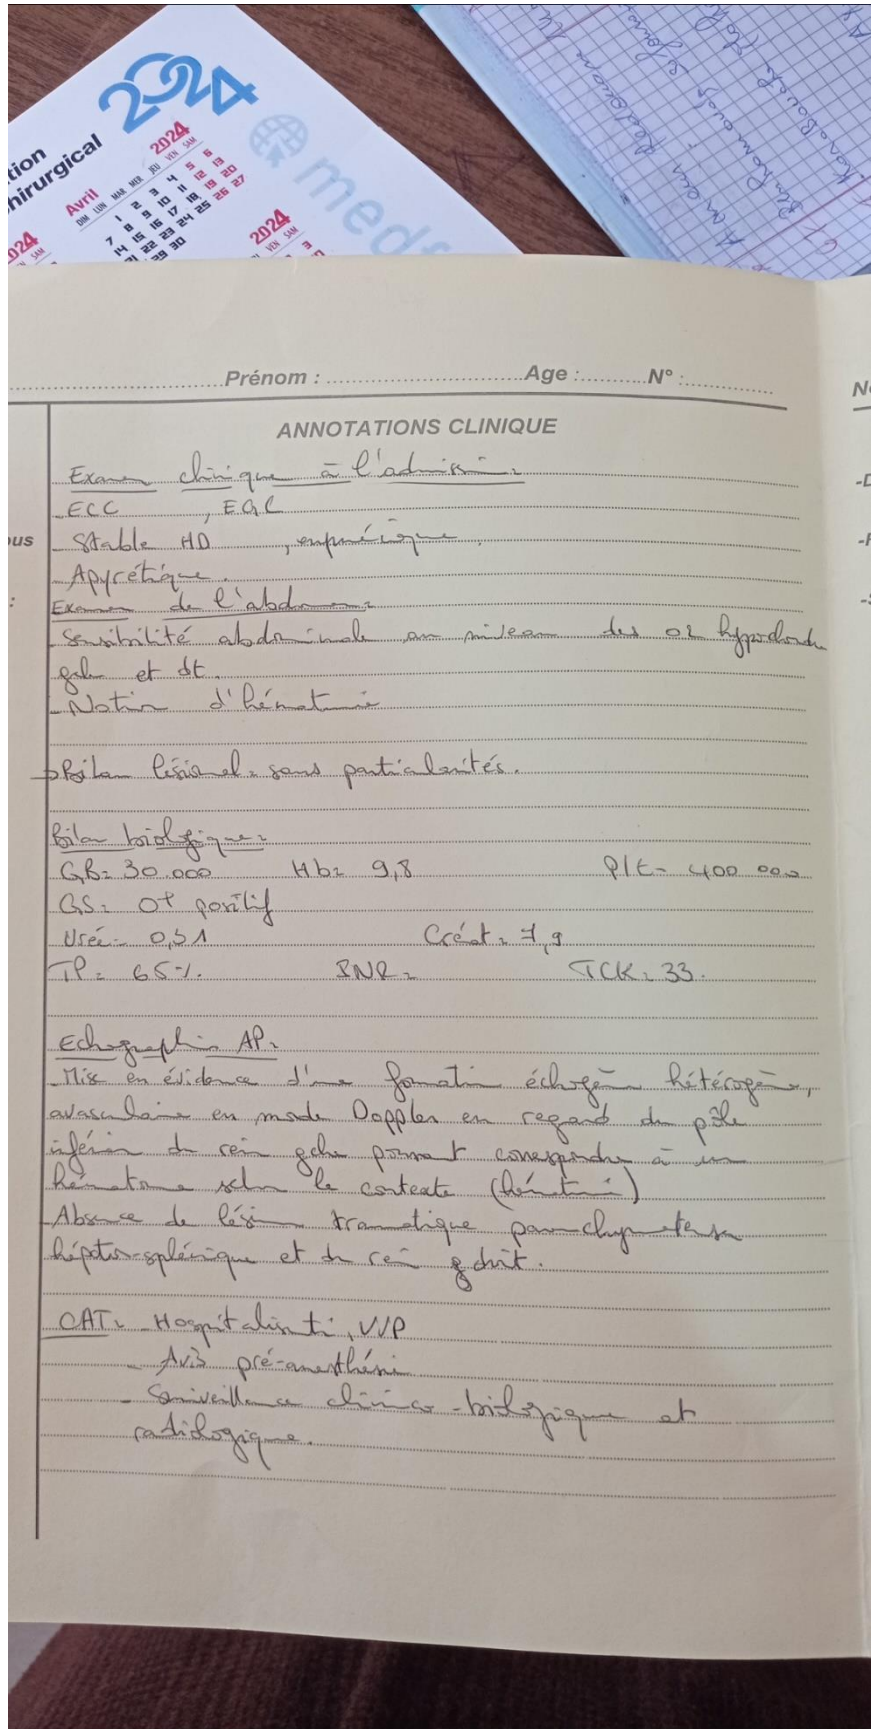 2024
tion
hirurgical
Avril 2024
DIM LUN MAR MER JEU VEN SAM
1 2 3 4 5 6
7 8 9 10 11 12 13
14 15 16 17 18 19 20
21 22 23 24 25 26 27
28 29 30
2024
SAM
2024
VEN SAM
3
medf
Prénom : Age : N° :
ANNOTATIONS CLINIQUE
Examen clinique à l'admission :
- ECC , EGC
ous
- Stable HD , eupnéique.
- Apyrétique.
Examen de l'abdomen :
- Sensibilité abdominale au niveau des 02 hypochondre
gche et dt.
- Notion d'hématurie
→ Bilan lésionel : sans particularités.
Bilan biologique :
GB : 30.000 Hb : 9,8 Plt : 400 000
GS : O+ positif
Urée : 0,31 Créat : 7,9
TP : 65 % INR : TCK : 33.
Echographie AP :
- Mise en évidence d'une formation échogène hétérogène,
avasculaire en mode Doppler en regard du pôle
inférieur du rein gche pouvant correspondre à un
hématome selon le contexte (hématurie)
- Absence de lésion traumatique parenchymateuse
hépato-splénique et du rein droit.
CAT : - Hospitalisation, VVP
- Avis pré-anesthésie
- Surveillance clinico-biologique et
radiologique.